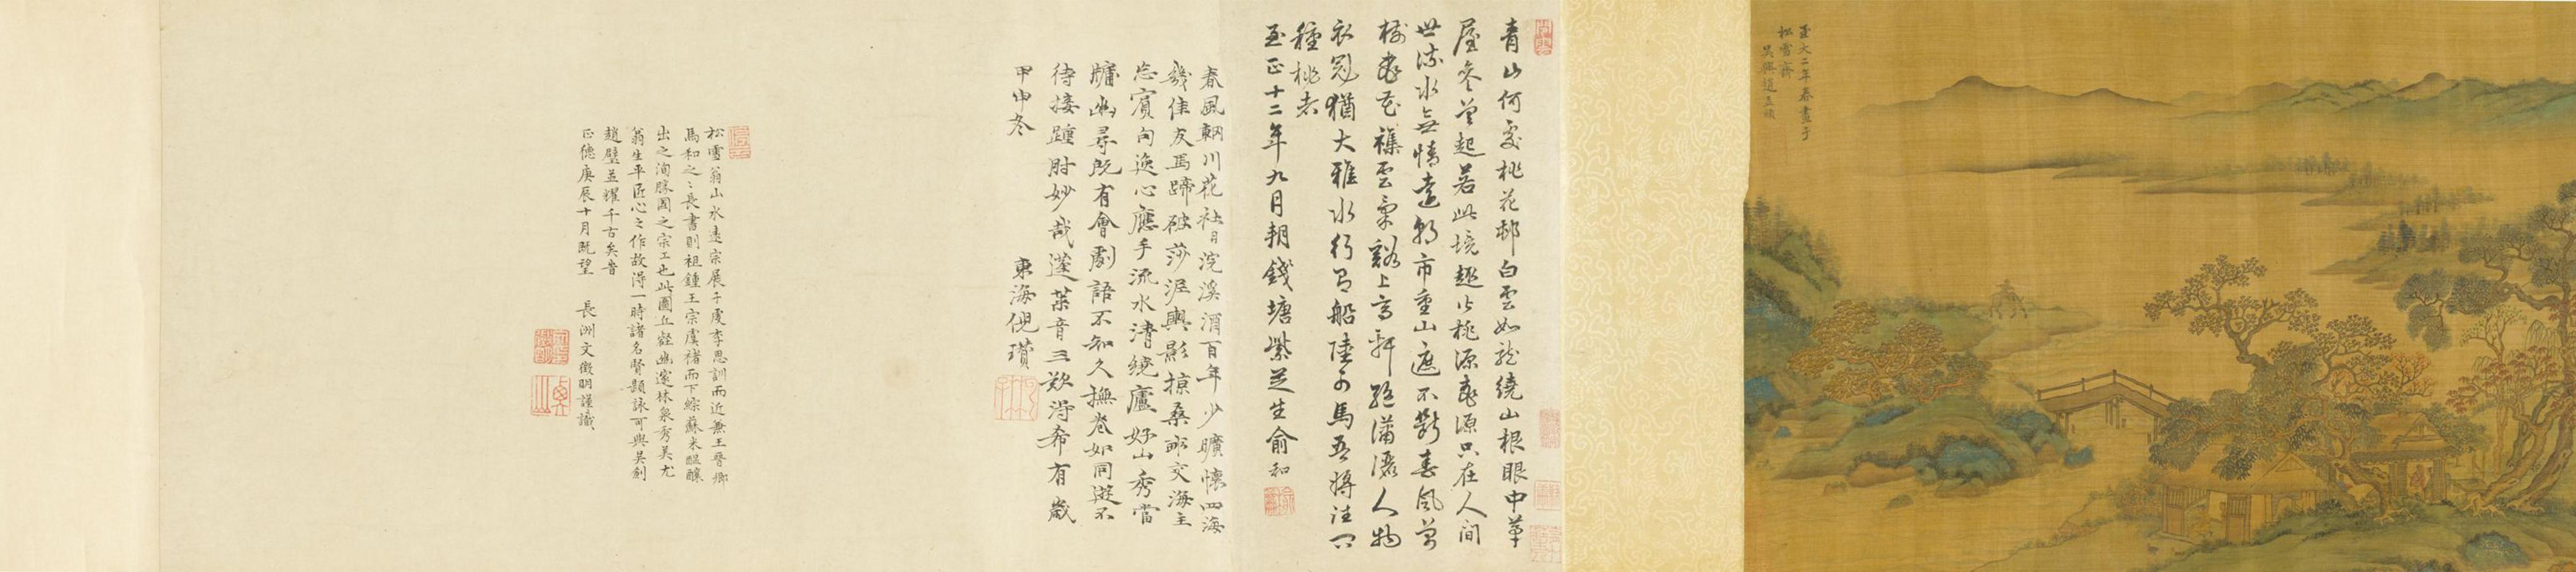 至大二年春畫于
松雪齋
吳興趙孟頫
青山何處桃花邨白雲如龍繞山根眼中草
屋參差起若此境趣比桃源桃源只在人間
世流水無情遠朝市重山遮不斷春風萬
樹花襍雲氣谿上高軒絕瀟灑人物
衣冠猶大雅水行有船陸有馬吾將往
種桃者
至正十二年九月朔錢塘紫芝生俞和
春風輞川花柳浣溪酒百年少曠懷四海
幾佳友馬蹄破莎泥輿影掠桑
忘賓向逸心應手流水清繞廬好山秀當
牖幽尋既有會劇語不知久撫卷如同遊不
待接踵肘妙哉蓬萊音三歎得希有歲
甲申冬 東海倪瓚
松雪翁山水遠宗展子虔李思訓而近兼王晉卿
馬和之之長書則祖鍾王宗虞褚而下綜蘇米醞釀
出之洵勝國之宗工也此圖丘壑幽邃林泉秀美尤
翁生平匠心之作故得一時諸名賢題詠可與吳剑
趙璧並耀千古矣旹
正德庚辰十月既望 長洲文徵明謹識